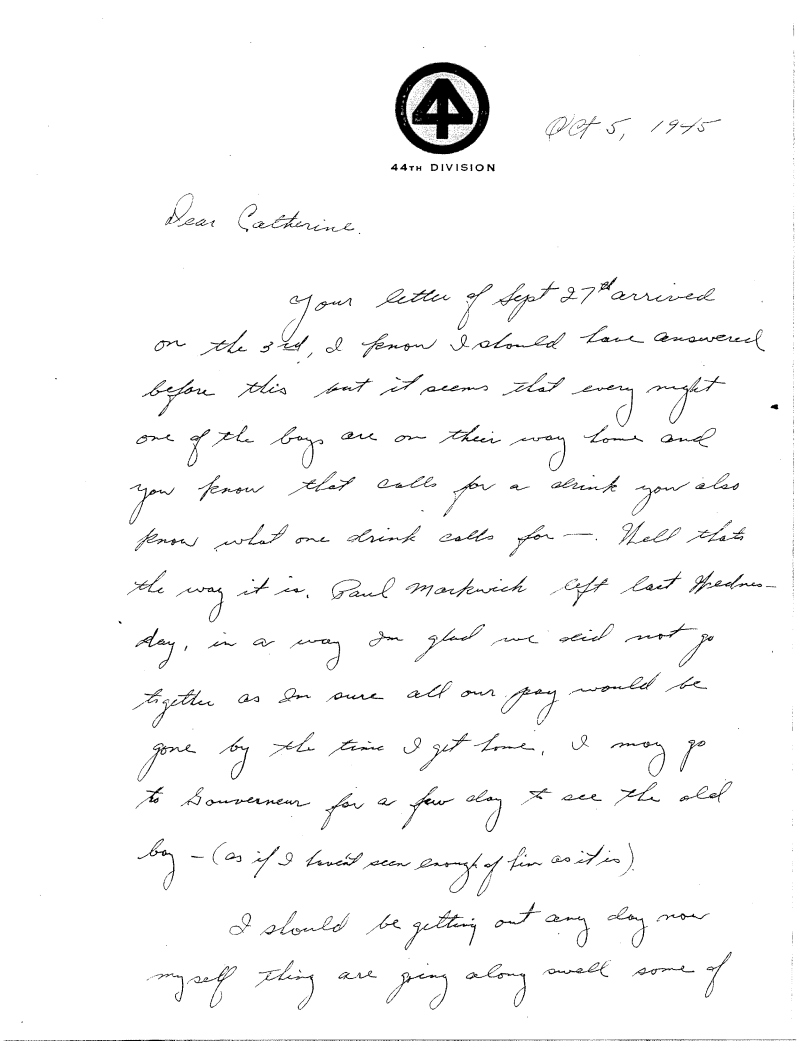 44TH DIVISION
Oct 5, 1945
Dear Catherine.
Your letter of Sept 27th arrived
on the 3rd, I know I should have answered
before this but it seems that every night
one of the boys are on their way home and
you know that calls for a drink you also
know what one drink calls for —. Well thats
the way it is. Paul Markwick left last Wednes-
day, in a way Im glad we did not go
together as Im sure all our pay would be
gone by the time I get home, I may go
to Gouverneur for a few day to see the old
boy – (as if I haven't seen enough of him as it is).
I should be getting out any day now
myself thing are going along swell some of